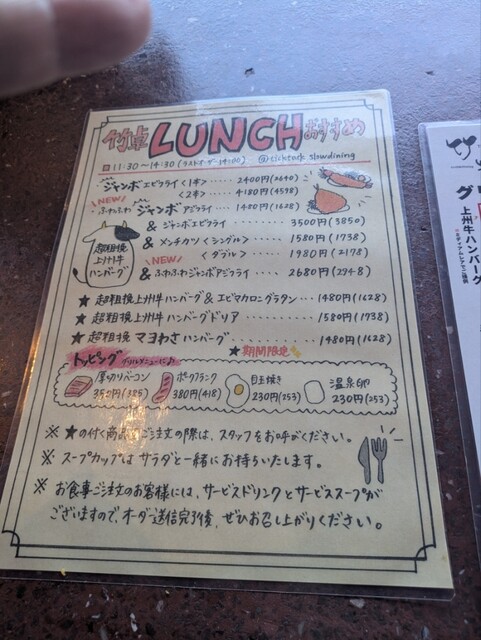 竹卓 LUNCH おすすめ
11:30〜14:30(ラストオーダー14:00) @ticktack slowdining
ジャンボエビフライ〈1本〉······2400円(2640)
〈2本〉······4180円(4598)
NEW
ふわふわジャンボアジフライ······1480円(1628)
超粗挽上州牛ハンバーグ
& ジャンボエビフライ 3500円(3850)
& メンチカツ〈シングル〉······1580円(1738)
〈ダブル〉······1980円(2178)
NEW
& ふわふわジャンボアジフライ······2680円(2948)
★ 超粗挽上州牛ハンバーグ&エビマカロニグラタン···1480円(1628)
★ 超粗挽上州牛ハンバーグドリア······1580円(1738)
★ 超粗挽マヨわさハンバーグ······1480円(1628)
★期間限定
トッピング グリルメニューに♪
厚切りベーコン 350円(385)
ポークフランク 380円(418)
目玉焼き 230円(253)
温泉卵 230円(253)
※ ★の付く商品をご注文の際は、スタッフをお呼びください。
※ スープカップはサラダと一緒にお持ちいたします。
※ お食事ご注文のお客様には、サービスドリンクとサービススープが
ございますので、オーダー送信完了後、ぜひお召し上がりください。
上州牛ハンバーグ